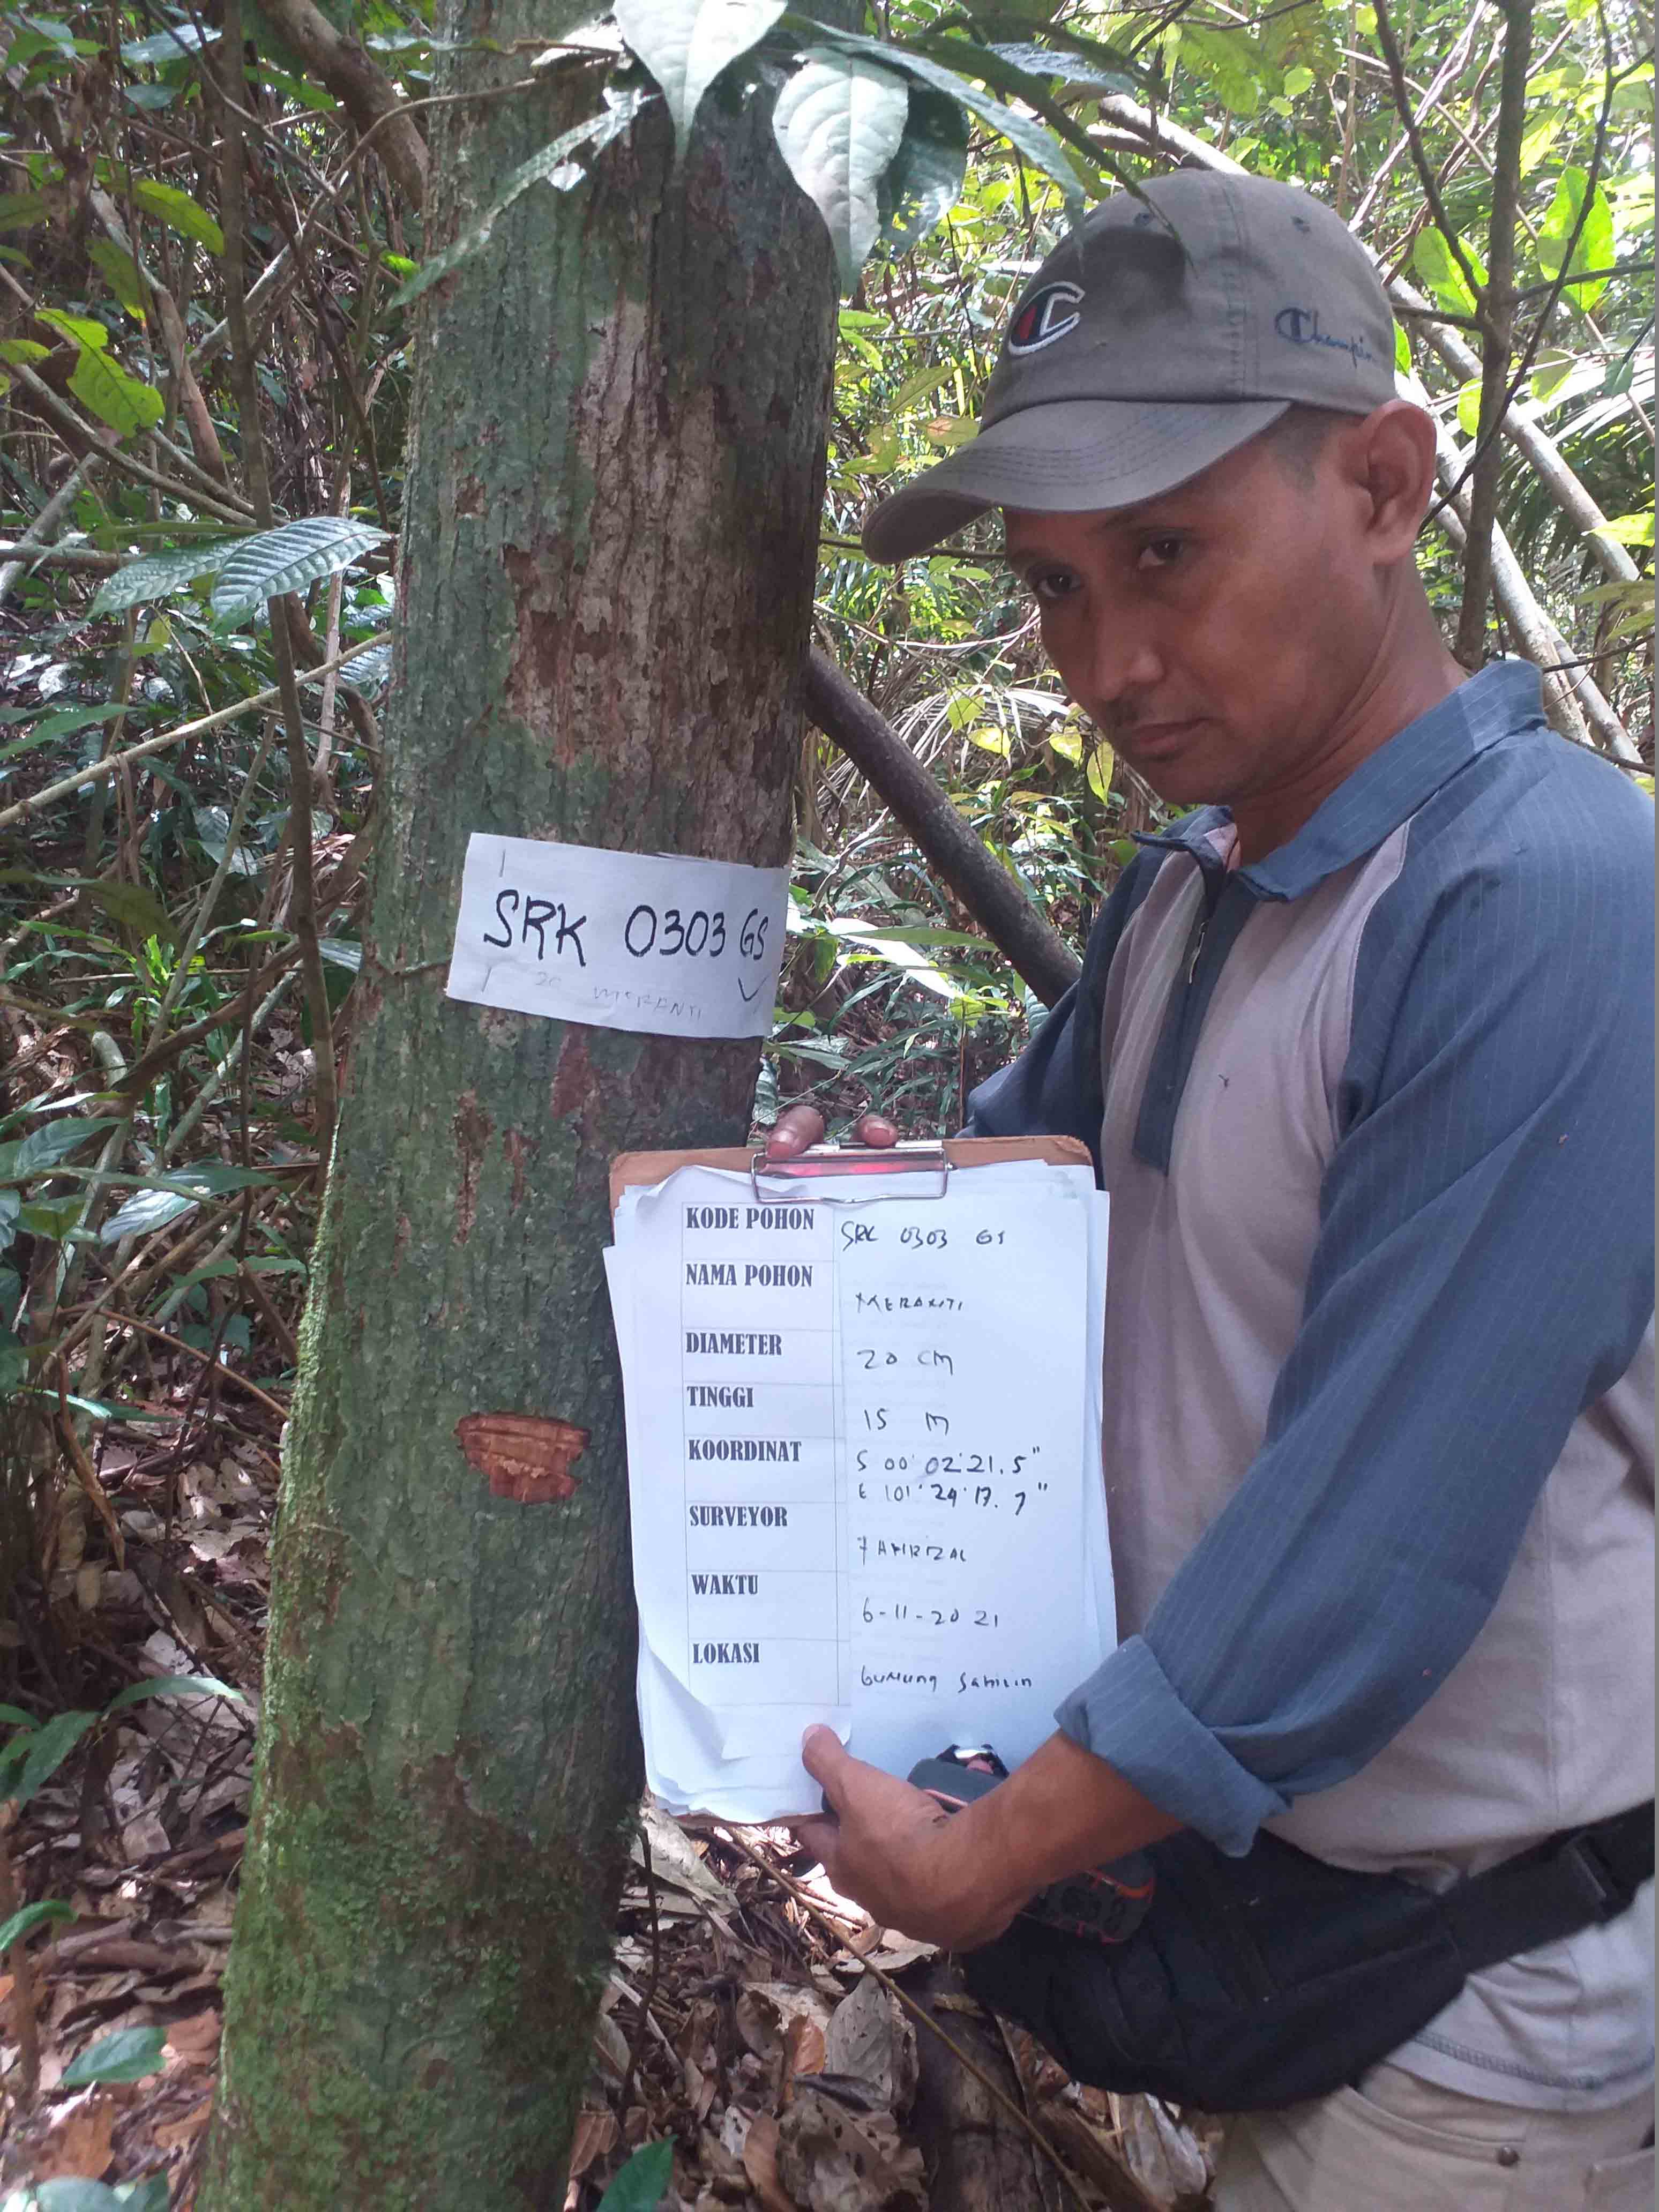 Champion
SRK 0303 GS
20 MERANTI
KODE POHON SRK 0303 GS
NAMA POHON MERANTI
DIAMETER 20 CM
TINGGI 15 M
KOORDINAT S 00° 02' 21.5"
E 101° 24' 17.7"
SURVEYOR
WAKTU 6-11-2021
LOKASI Gunung Sahilin